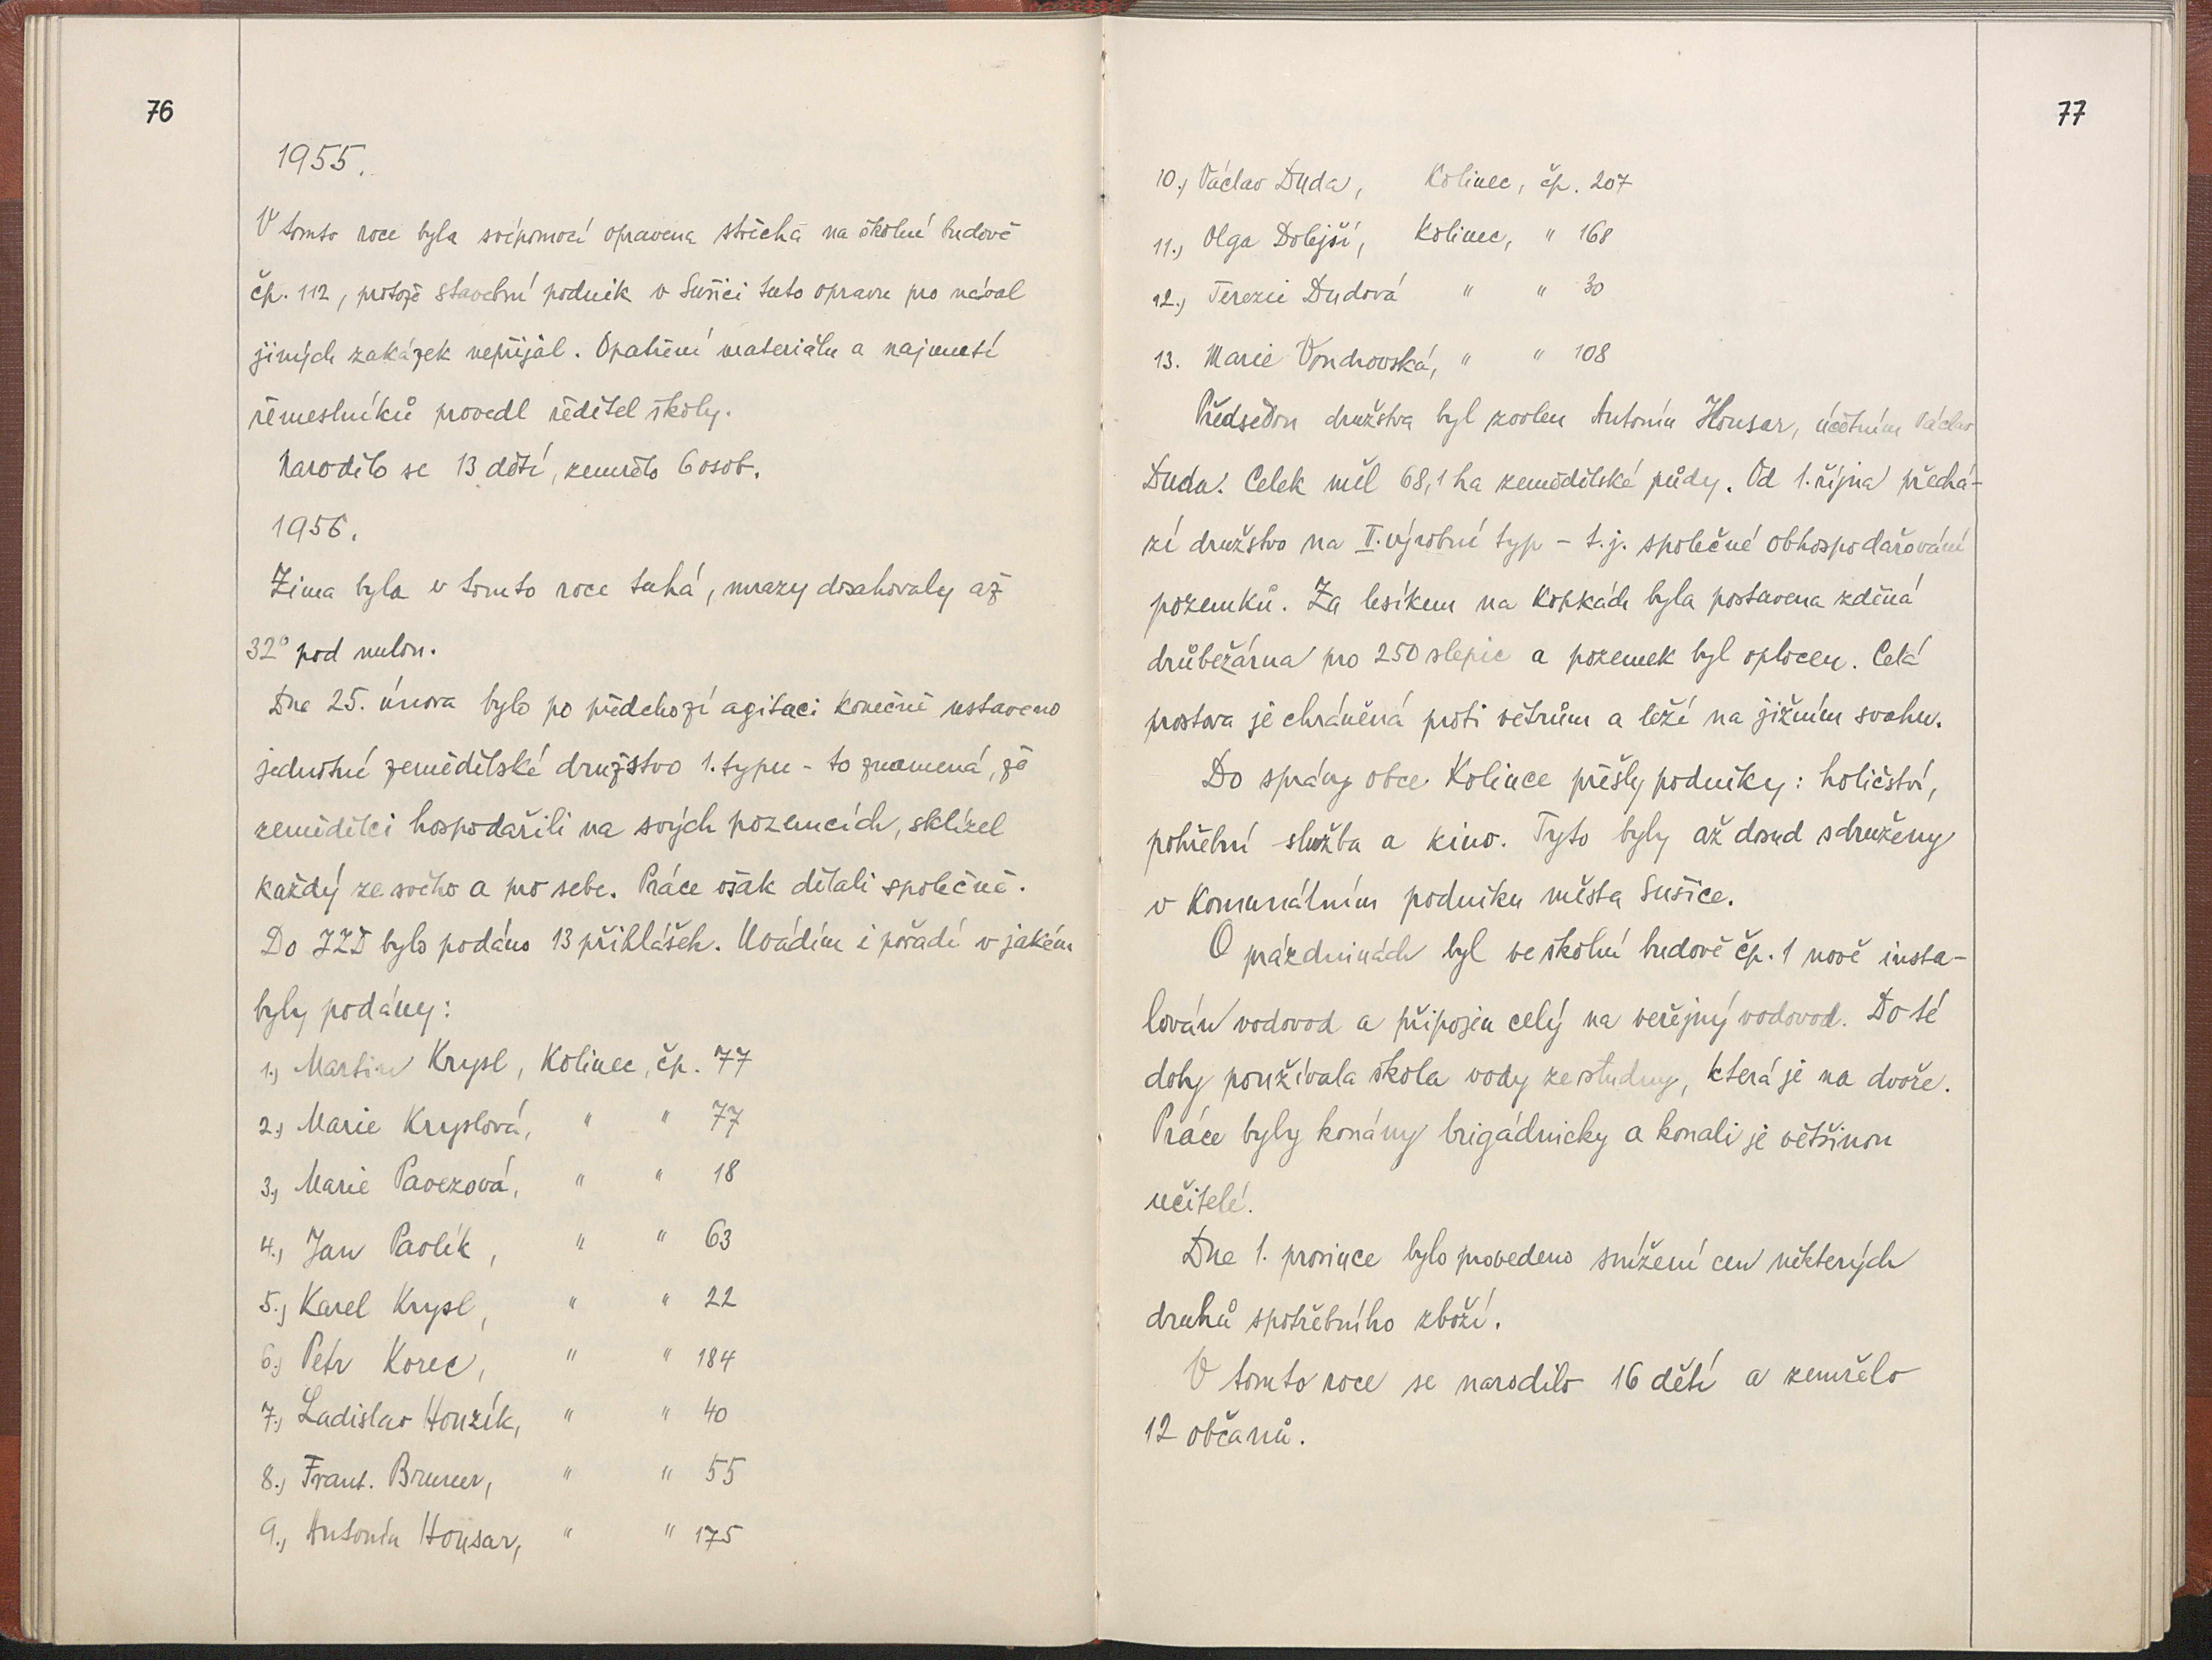 76
1955.
V tomto roce byla svépomocí opravena střecha na školní budově
čp. 112, protože stavební podnik v Sušici tuto opravu pro nával
jiných zakázek nepřijal. Opatření materiálu a najmutí
řemeslníků provedl ředitel školy.
Narodilo se 13 dětí, zemřelo 6 osob.
1956.
Zima byla v tomto roce tuhá, mrazy dosahovaly až
32° pod nulou.
Dne 25. února bylo po předchozí agitaci konečně ustaveno
jednotné zemědělské družstvo 1. typu - to znamená, že
zemědělci hospodařili na svých pozemcích, sklízel
každý ze svého a pro sebe. Práce však dělali společně.
Do JZD bylo podáno 13 přihlášek. Uvádím i pořadí v jakém
byly podány:
1.) Martin Krysl, Kolinec, čp. 77
2.) Marie Kryslová, " " 77
3.) Marie Pavezová, " " 18
4.) Jan Pavlík, " " 63
5.) Karel Krysl, " " 22
6.) Petr Korec, " " 184
7.) Ladislav Houzík, " " 40
8.) Frant. Bruner, " " 55
9.) Antonín Housar, " " 175
77
10.) Václav Duda, Kolinec, čp. 207
11.) Olga Dolejší, Kolinec, " 168
12.) Terezie Dudová " " 30
13. Marie Vondrovská, " " 108
Předsedou družstva byl zvolen Antonín Housar, účetním Václav
Duda. Celek měl 68,1 ha zemědělské půdy. Od 1. října přechá-
zí družstvo na II. výrobní typ - t.j. společné obhospodařování
pozemků. Za lesíkem na Kopkách byla postavena zděná
drůbežárna pro 250 slepic a pozemek byl oplocen. Celá
prostora je chráněná proti větrům a leží na jižním svahu.
Do správy obce Kolince přešly podniky: holičství,
pohřební služba a kino. Tyto byly až dosud sdruženy
v Komunálním podniku města Sušice.
O prázdninách byl ve školní budově čp. 1 nově insta-
lován vodovod a připojen celý na veřejný vodovod. Do té
doby používala škola vody ze studny, která je na dvoře.
Práce byly konány brigádnicky a konali je většinou
učitelé.
Dne 1. prosince bylo provedeno snížení cen některých
druhů spotřebního zboží.
V tomto roce se narodilo 16 dětí a zemřelo
12 občanů.